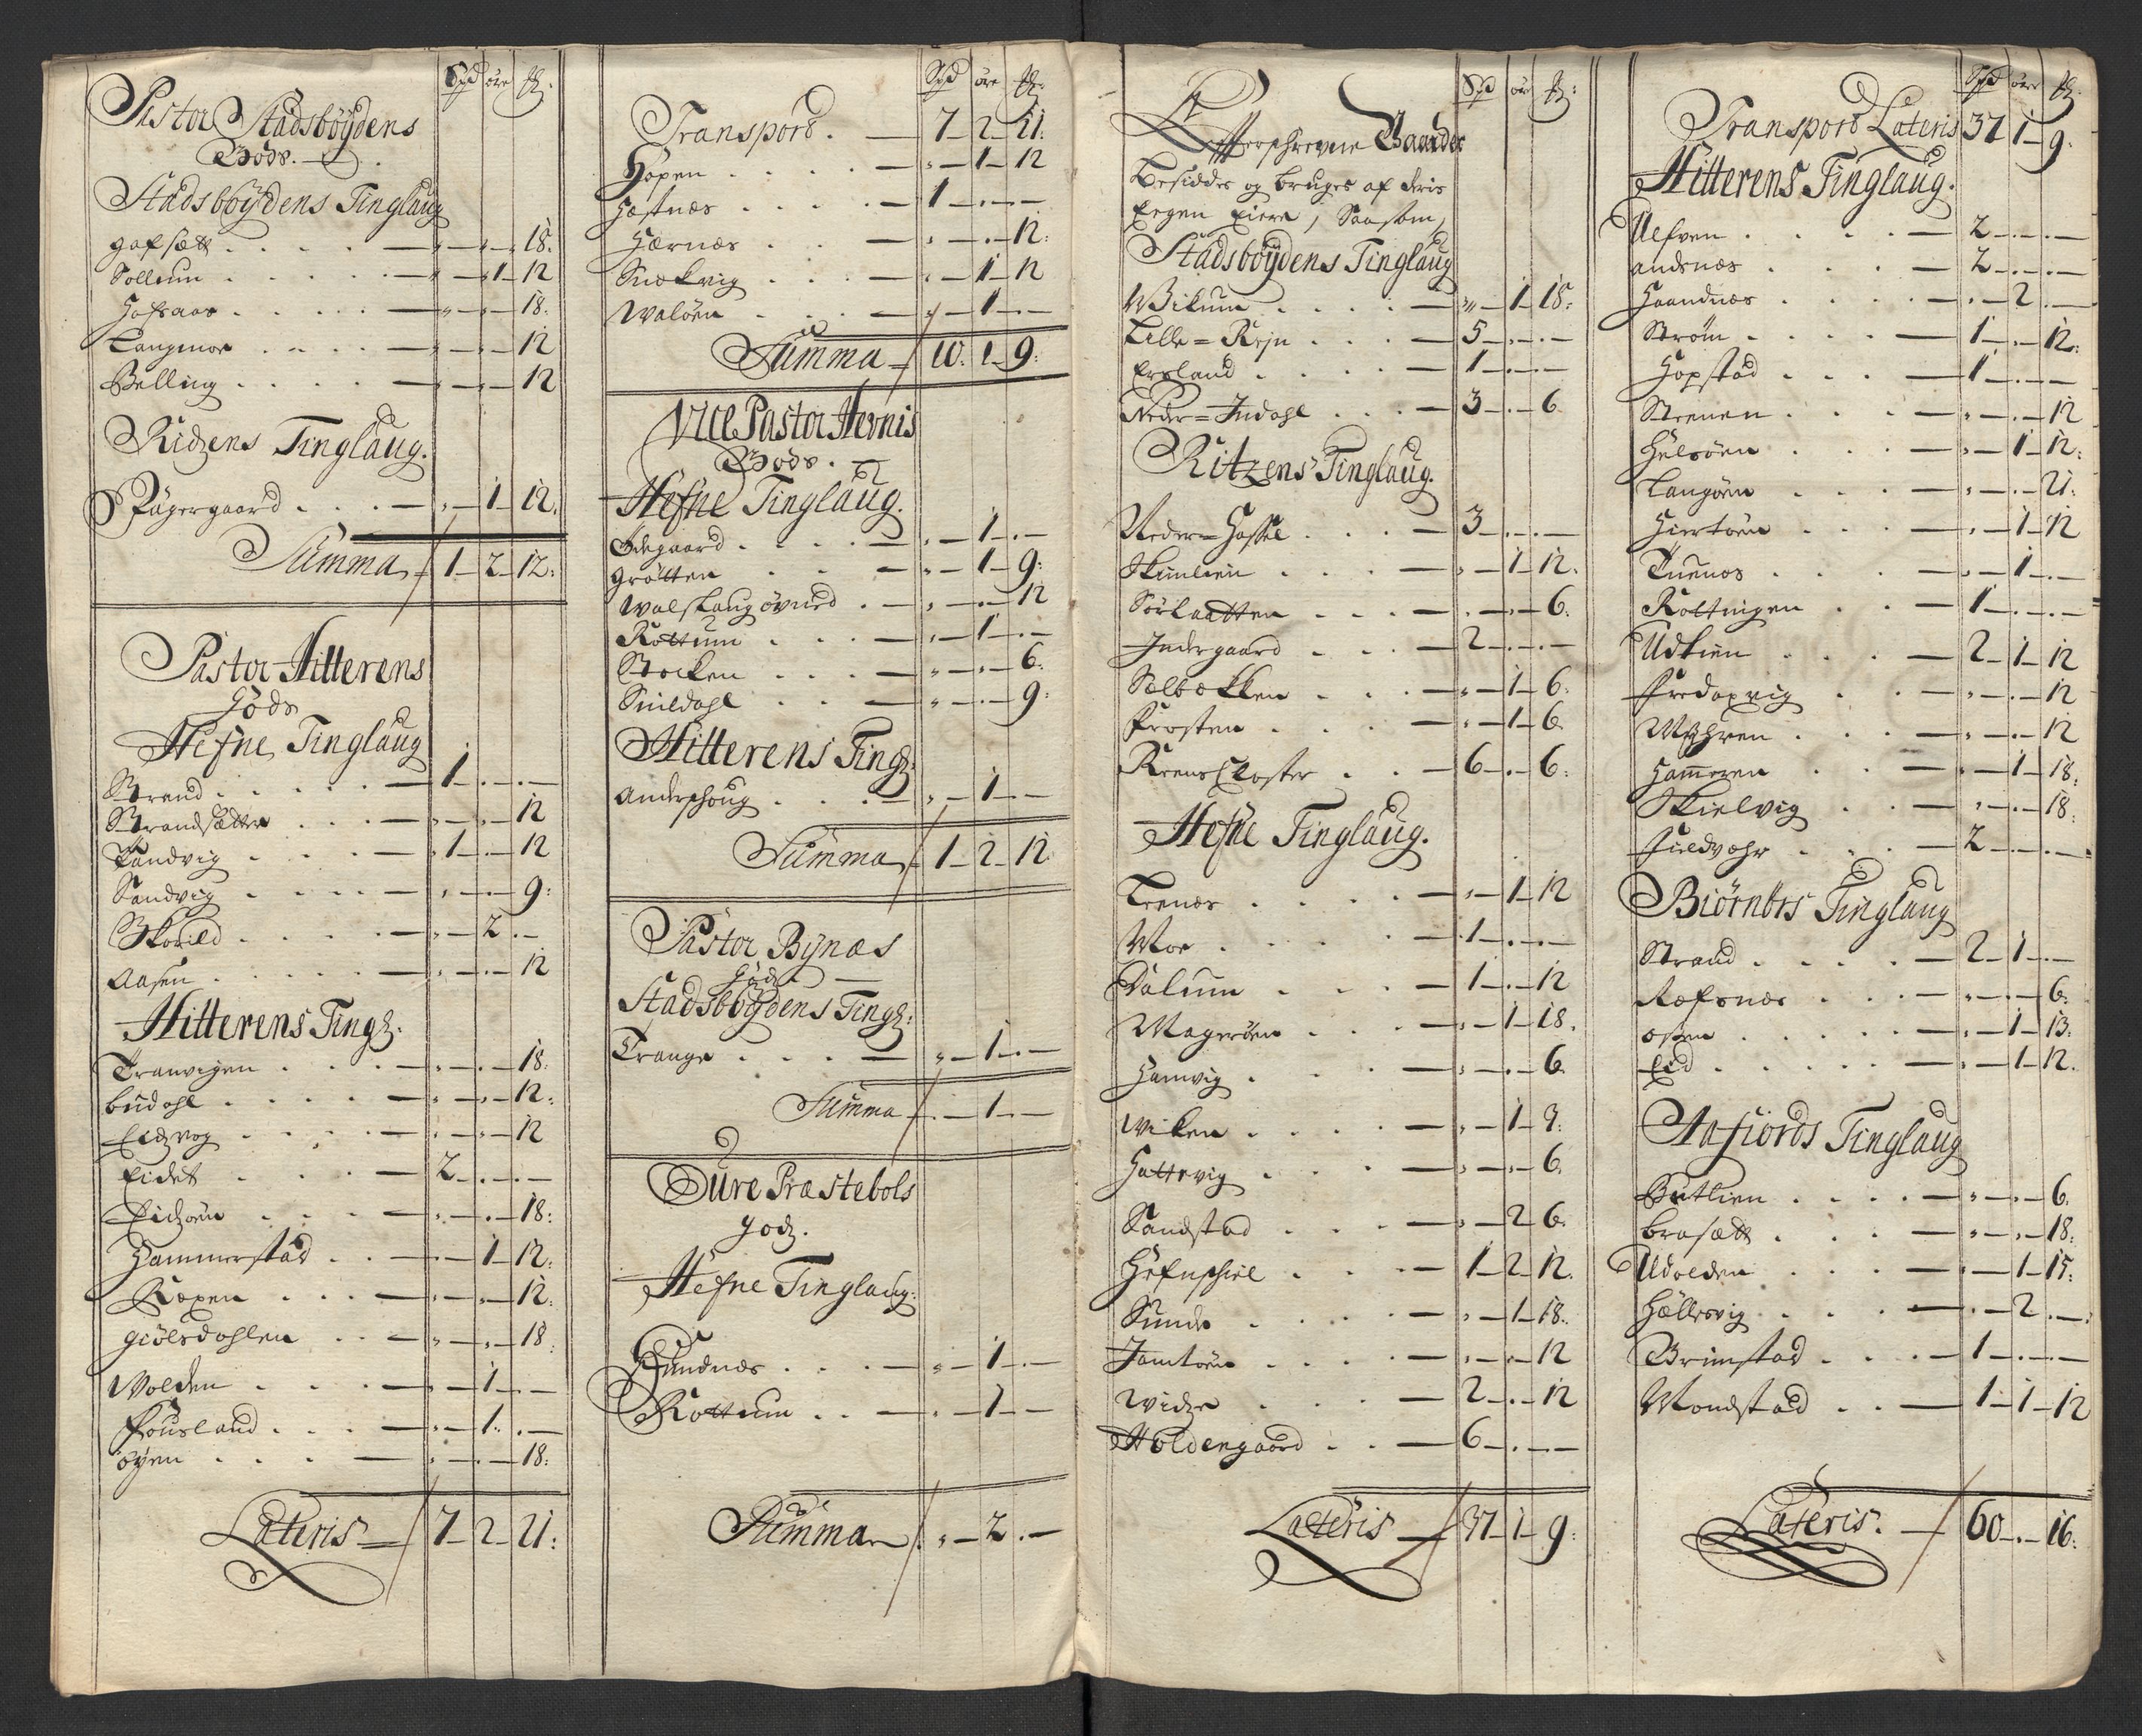 Spd öre
Pastor Stadsböydens
Godz.
Stadsböydens Tinglaug
gafsætt . . . . — „ — „ — 18.
Sollium . . . . — „ — 1 — 12
Hofsaas . . . . — „ — „ — 18.
Langmoe . . . . — „ — „ — 12
Belling . . . . — „ — „ — 12
Ridzens Tinglaug.
Rägergaard . . . — „ — 1 — 12.
Summa — 1 — 2 — 12:
Pastor Hitterens
Gods
Hefne Tinglaug
Strand . . . . — 1 — . —
Strandsætter . . . — „ — „ — 12
Tandvig . . . — 1 — . — 12
Sandvig . . . . — „ — . — 9:
Skorild . . . . — „ — 2 . —
Aasen . . . . — „ — . — 12
Hitterens Tingl.
Tranvigen . . . — „ — . — 18:
Budahl . . . . — „ — „ — 12:
Eidzvog . . . . — „ — „ — 12
Eidet . . . — 2 — . — . —
Eidzöen . . . — „ — . — 18:
Hammerstad . . — „ — 1 — 12:
Kopen . . . — „ — „ — 12:
giölsdahlen . . — „ — „ — 18:
Wolden . . . — „ — 1 — . —
Frösland . . . — „ — 1 . —
öyen . . . . — „ — . — 18:
Lateris — 7 — 2 — 21:
Spd öre
Transpord. — 7 — 2 — 21:
Hopen . . . . — „ — 1 — 12
Hestnæs . . . . — 1 — . — —
Hernæs . . . — „ — . — 12:
Snekvig . . . — „ — 1 — 12
Walöen . . . — „ — 1 — . —
Summa — 10. 1 — 9:
Vice Pastor Hevnis
Godz. —
Hefne Tinglaug.
Ödegaard . . . . — „ — 1 — . —
grötten . . . — „ — 1 — 9:
Walslaug övned . — „ — „ — 12
Rottum . . . — „ — 1 — . —
Stocken . . . — „ — „ — 6.
Snildahl . . . — „ — „ — 9:
Hitterens Tingl:
Anderschoug . . . — „ — 1 — . —
Summa — 1 — 2 — 12
Pastor Bynæs
Godz —
Stadsböydens Tingl:
Trange . . . — „ — 1 — . —
Summa — . — 1 — . —
Öure Præstebols
godz.
Hefne Tinglaug:
Sundnæs . . . — „ — 1 — . —
Rottum . . — „ — 1 — . —
Summa „ — 2 . —
Spd öre
Efferschrevne Gaarder
Besiddes og bruges af deris
Eegen Eiere, Saasom,
Stadsböydens Tinglaug
Wikum . . . . — „ — 1 18:
Lille = Rejn . . . — 5 — . — . —
Ersland . . . . — 1 — . — . —
Neder = Indahl . . . — 3 — . — 6.
Ritzens Tinglaug.
Neder = Hassel . . . — 3 — . — . —
Skimlien . . . — „ — 1 — 12.
Sörlaatten . . . — . — „ — 6.
Indergaard . . . — 2 — . — . —
Sølbækken . . . — „ — 1 — 6:
Frosten . . . — „ — 1 — 6.
Reens Closter . . — 6 — . — 6:
Hefne Tinglaug.
Teenes . . . . — „ — 1 — 12
Moe . . . . — 1 — . — . —
Dalum . . . — 1 — . — 12
Mageröen . . . — „ — 1 — 18.
Hamvig . . . — „ — . — 6.
Wiken . . . . — „ — 1 — 9:
Hattevig . . . — „ — „ — 6.
Sandstad . . . — „ — 2 — 6.
Hefnschiel . . . — 1 — 2 — 12.
Sunde . . . . — „ — 1 — 18.
Jamtöen . . . . — „ — „ — 12
Widze . . . — 2 — . — 12
Holdengaard . . — 6 — . — . —
Lateris — 37 — 1 — 9:
Spd öre
Transpord Lateris 37 1 — 9.
Hitterens Tinglaug.
Ulfven . . . . — 2 — . — . —
andsnæs . . . — 2 — . — . —
Haandnæs . . . . — „ — 2 . —
Ström . . . . — 1 — . — 12:
Hopstad . . . — 1 — . — . —
Strenen . . . — „ — . — 12
Helsöen . . . — „ — 1 — 12:
Langöen . . . — „ — . — 21:
Hiertöen . . . — „ — 1 — 12
Tuenæs . . . — „ — 1 — . —
Kottingen . . — 1 — . — . —
Udtien . . . — 2 — 1 — 12
Fredagvig . . — „ — . — 12
Myhren . . . — „ — . — 12
Hammeren . . — „ — 1 — 18:
Skielvig . . — „ — . — 18:
Fieldvahr . . . — 2 — . — . —
Biörnörs Tinglaug
Strand . . . . — 2 — 1 — . —
Refsnæs . . . — „ — . — 6.
osen . . . . . — „ — 1 — 13:
Eid . . . . . — „ — 1 — 12.
Aafiords Tinglaug
Butlien . . . . — „ — „ — 6.
bræsætt . . . — „ — „ — 18:
Udolden . . . — „ — 1 — 15:
Hellesvig . . . — „ — 2 . —
Grimstad . . . — 1 — . — . —
Mondstad . . — 1 — 1 — 12
Lateris. — 60 — . — 16: